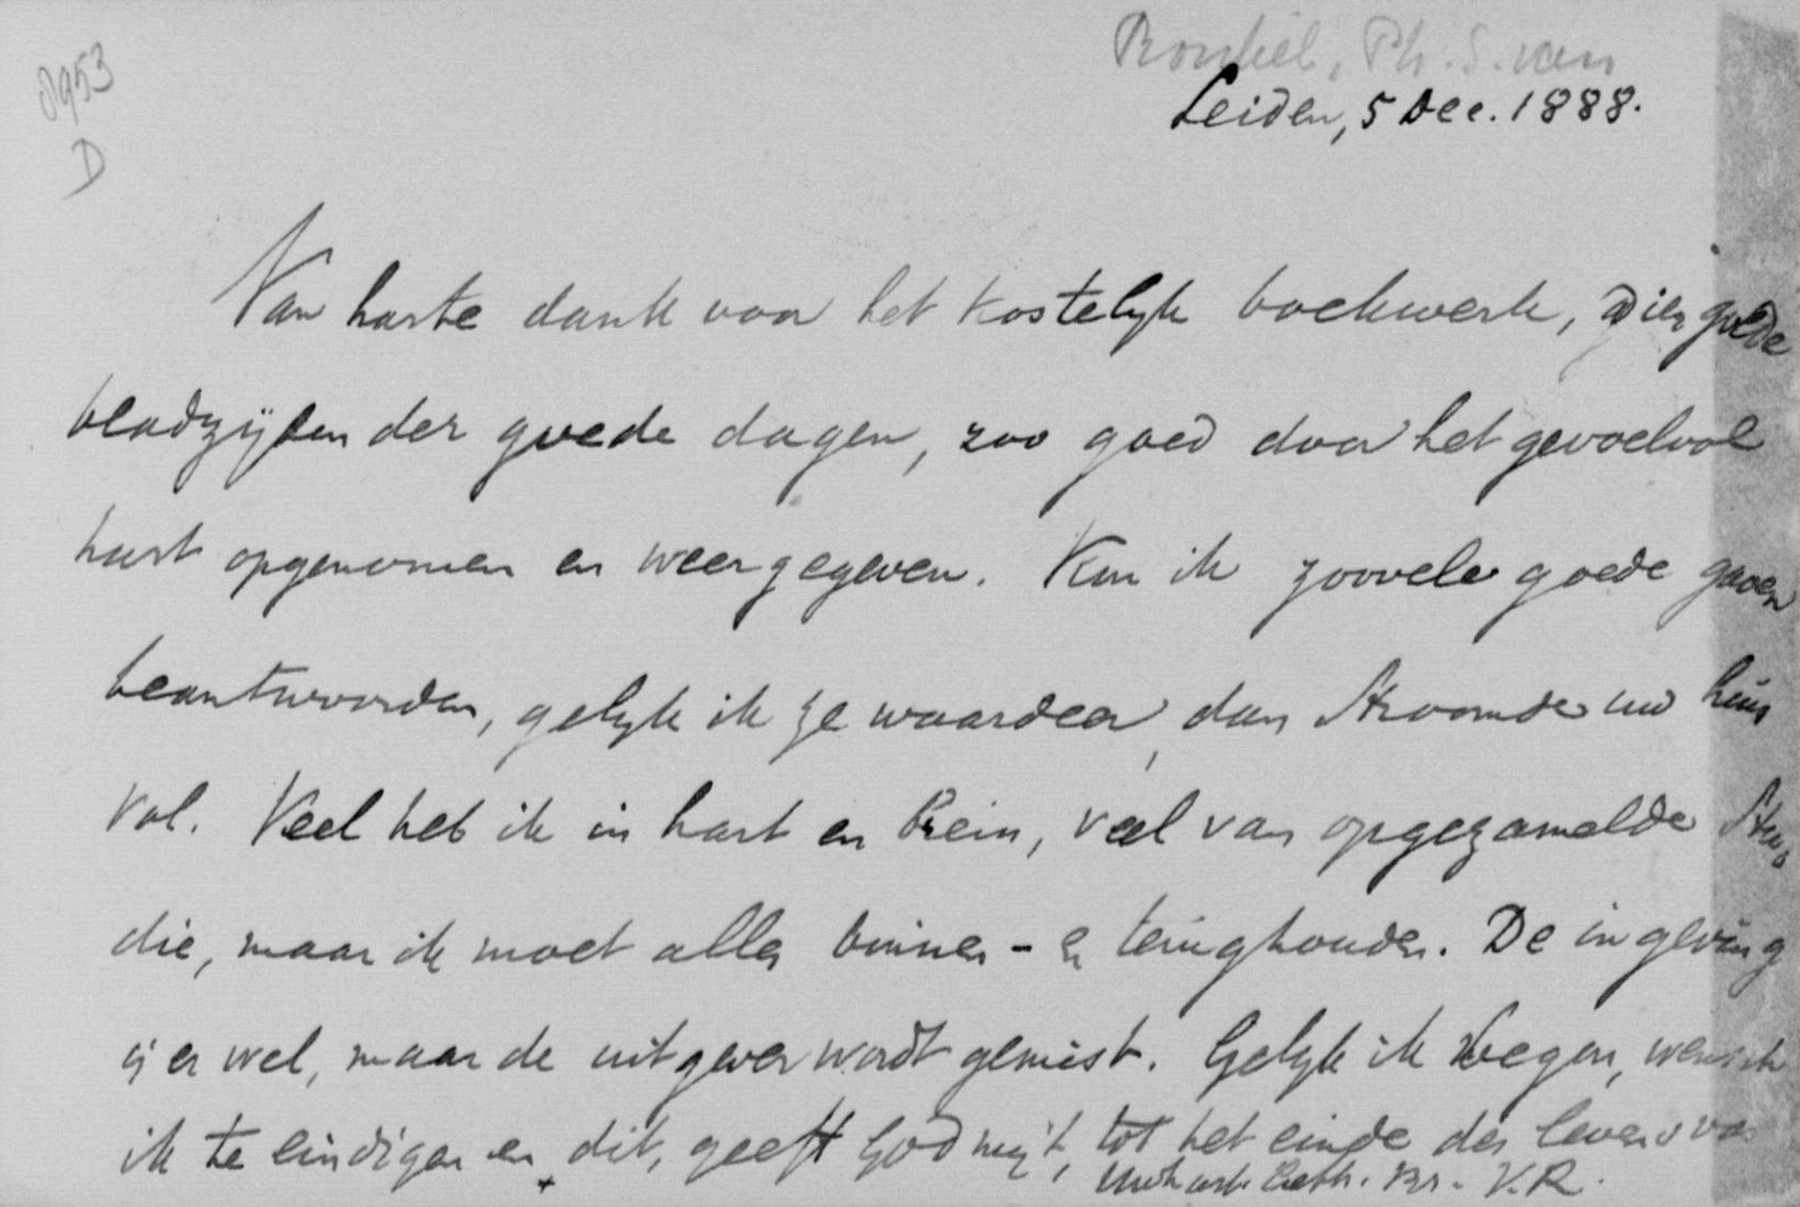 8953
D
Ronkel, Ph. S. van
Leiden, 5 Dec. 1888.
Van harte dank voor het kostelijk boekwerk, dier goede
bladzijden der goede dagen, zoo goed door het gevoelvol
hart opgenomen en weergegeven. Kon ik zoovele goede gaven
beantwoorden, gelijk ik ze waardeer, dan stroomde uw huis
vol. Veel heb ik in hart en brein, veel van opgezamelde stu-
die, maar ik moet alles binnen - en terughouden. De ingeving
is er wel, maar de uitgever wordt gemist. Gelijk ik begon, wensch
ik te eindigen en dit, geeft God mij 't, tot het einde des levens van
Uw hart. V.R.